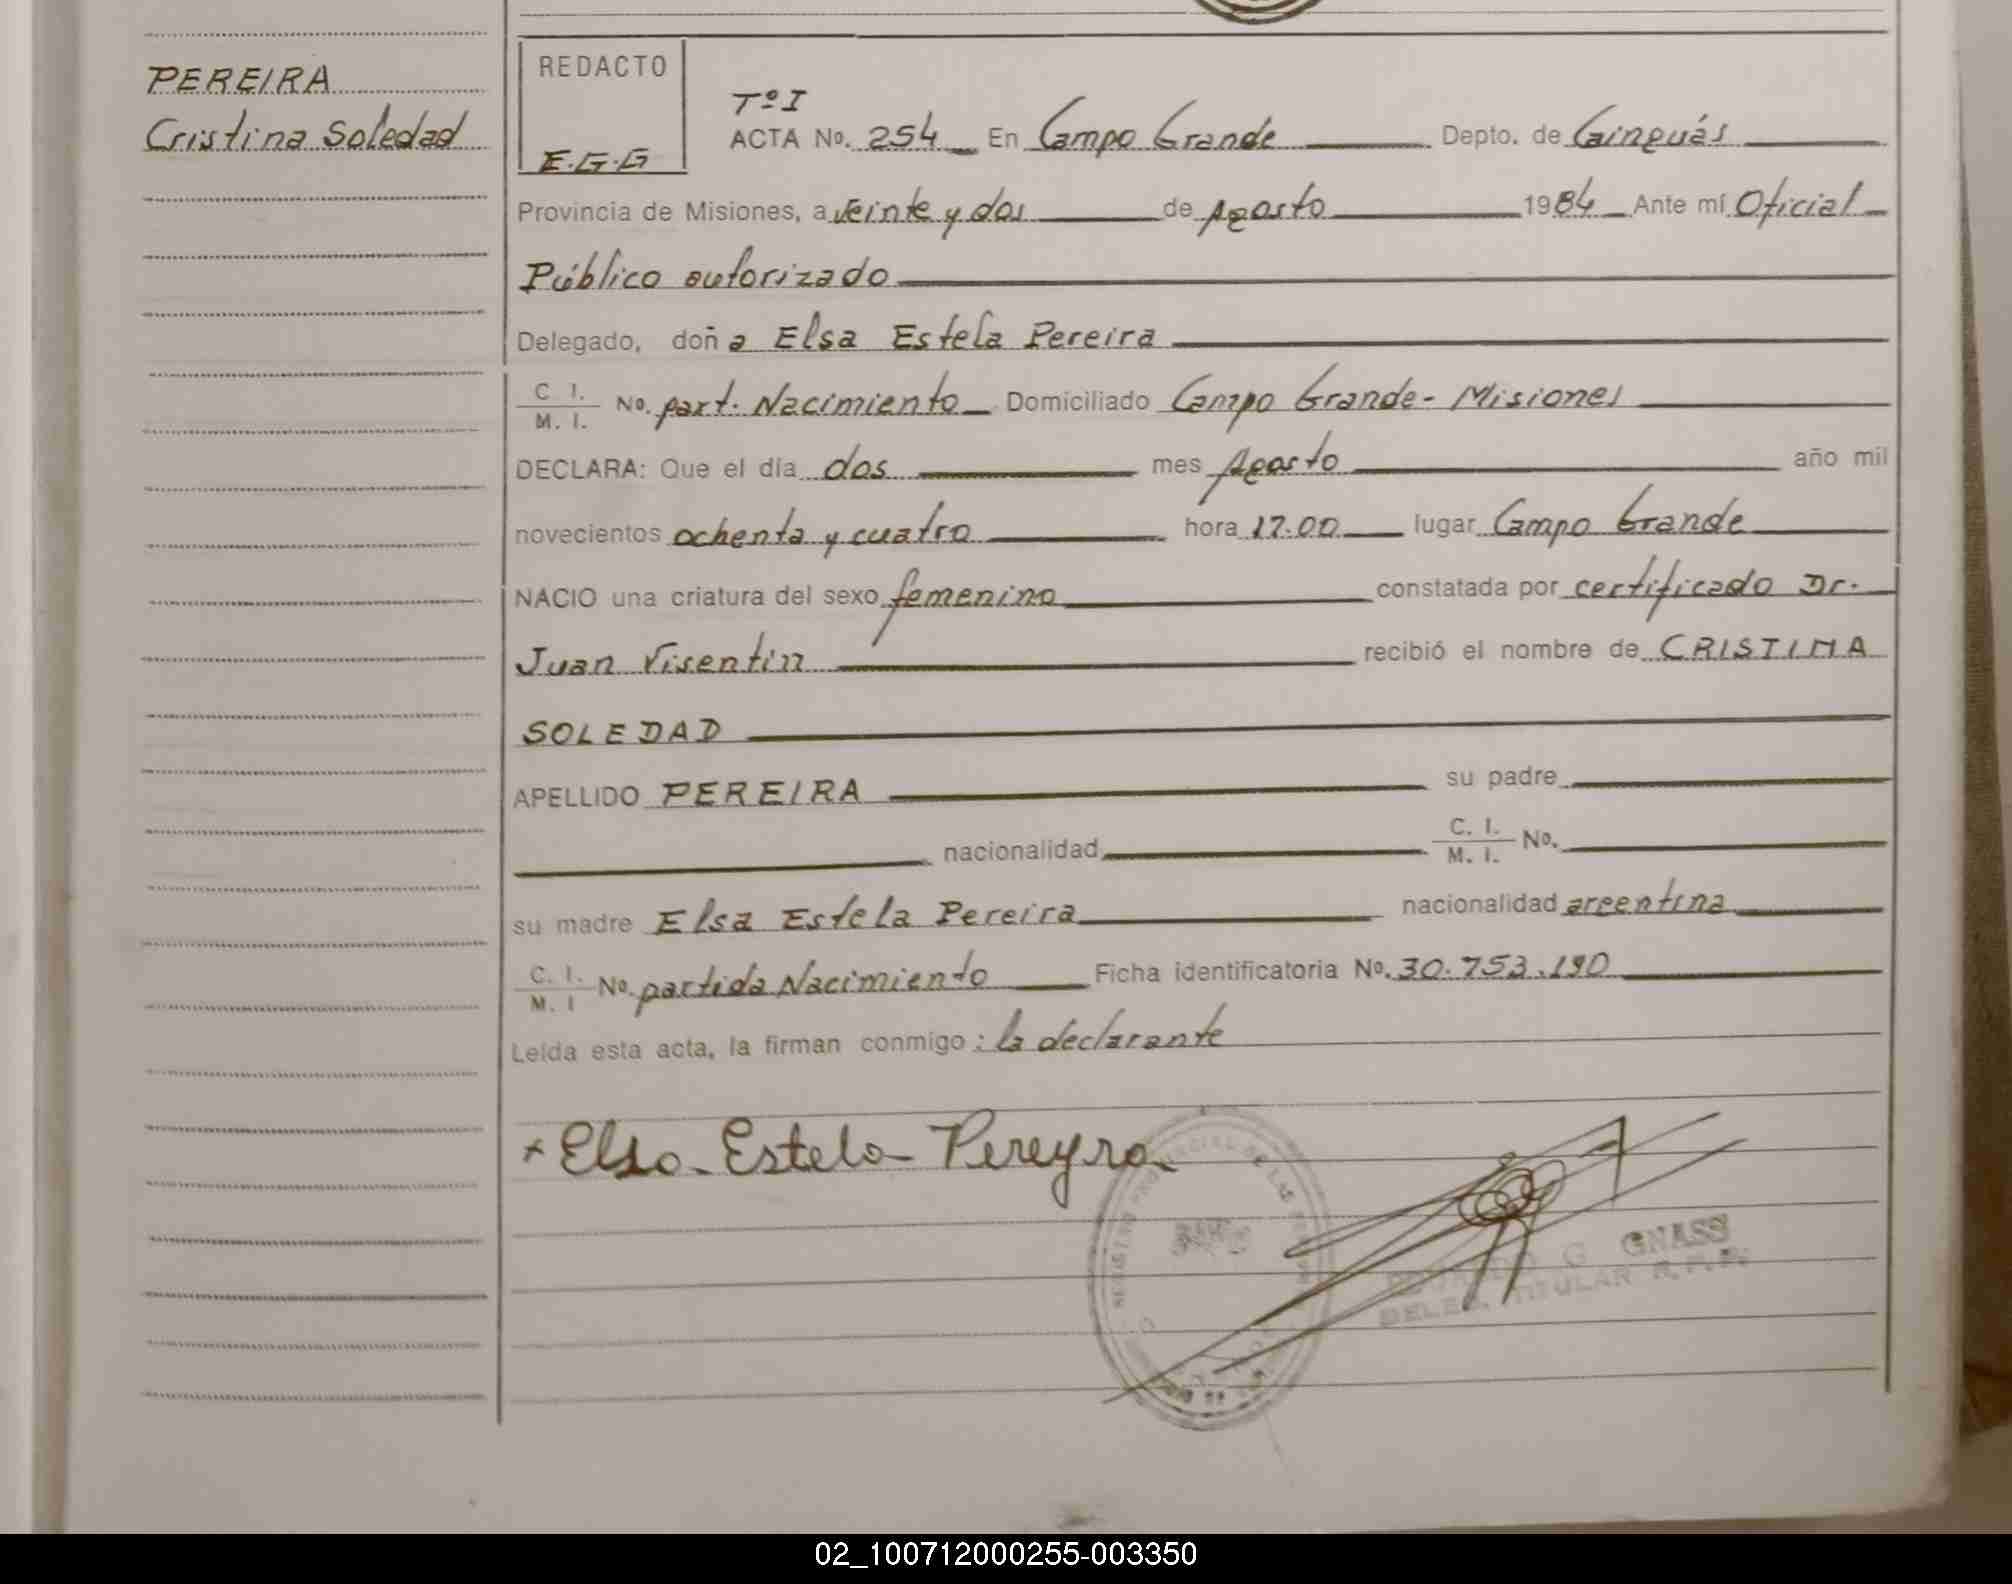 PEREIRA
Cristina Soledad
REDACTO
E.G.G
Tº I
ACTA No. 254 En Campo Grande Depto. de Cainguás
Provincia de Misiones, a veinte y dos de Agosto 1984 Ante mí Oficial
Público autorizado
Delegado, doña Elsa Estela Pereira
C. I. / M. I. No. part. Nacimiento Domiciliado Campo Grande - Misiones
DECLARA: Que el día dos mes Agosto año mil
novecientos ochenta y cuatro hora 17.00 lugar Campo Grande
NACIO una criatura del sexo femenino constatada por certificado Dr.
Juan Visentin recibió el nombre de CRISTINA
SOLEDAD
APELLIDO PEREIRA su padre
nacionalidad C. I. / M. I. No.
su madre Elsa Estela Pereira nacionalidad argentina
C. I. / M. I No. partida Nacimiento Ficha identificatoria No. 30.753.190
Leída esta acta, la firman conmigo: la declarante
x Elsa Estela Pereyra
REGISTRO PROVINCIAL DE LAS
G. GNASS
DELEG. TITULAR R.P.P.
02_100712000255-003350